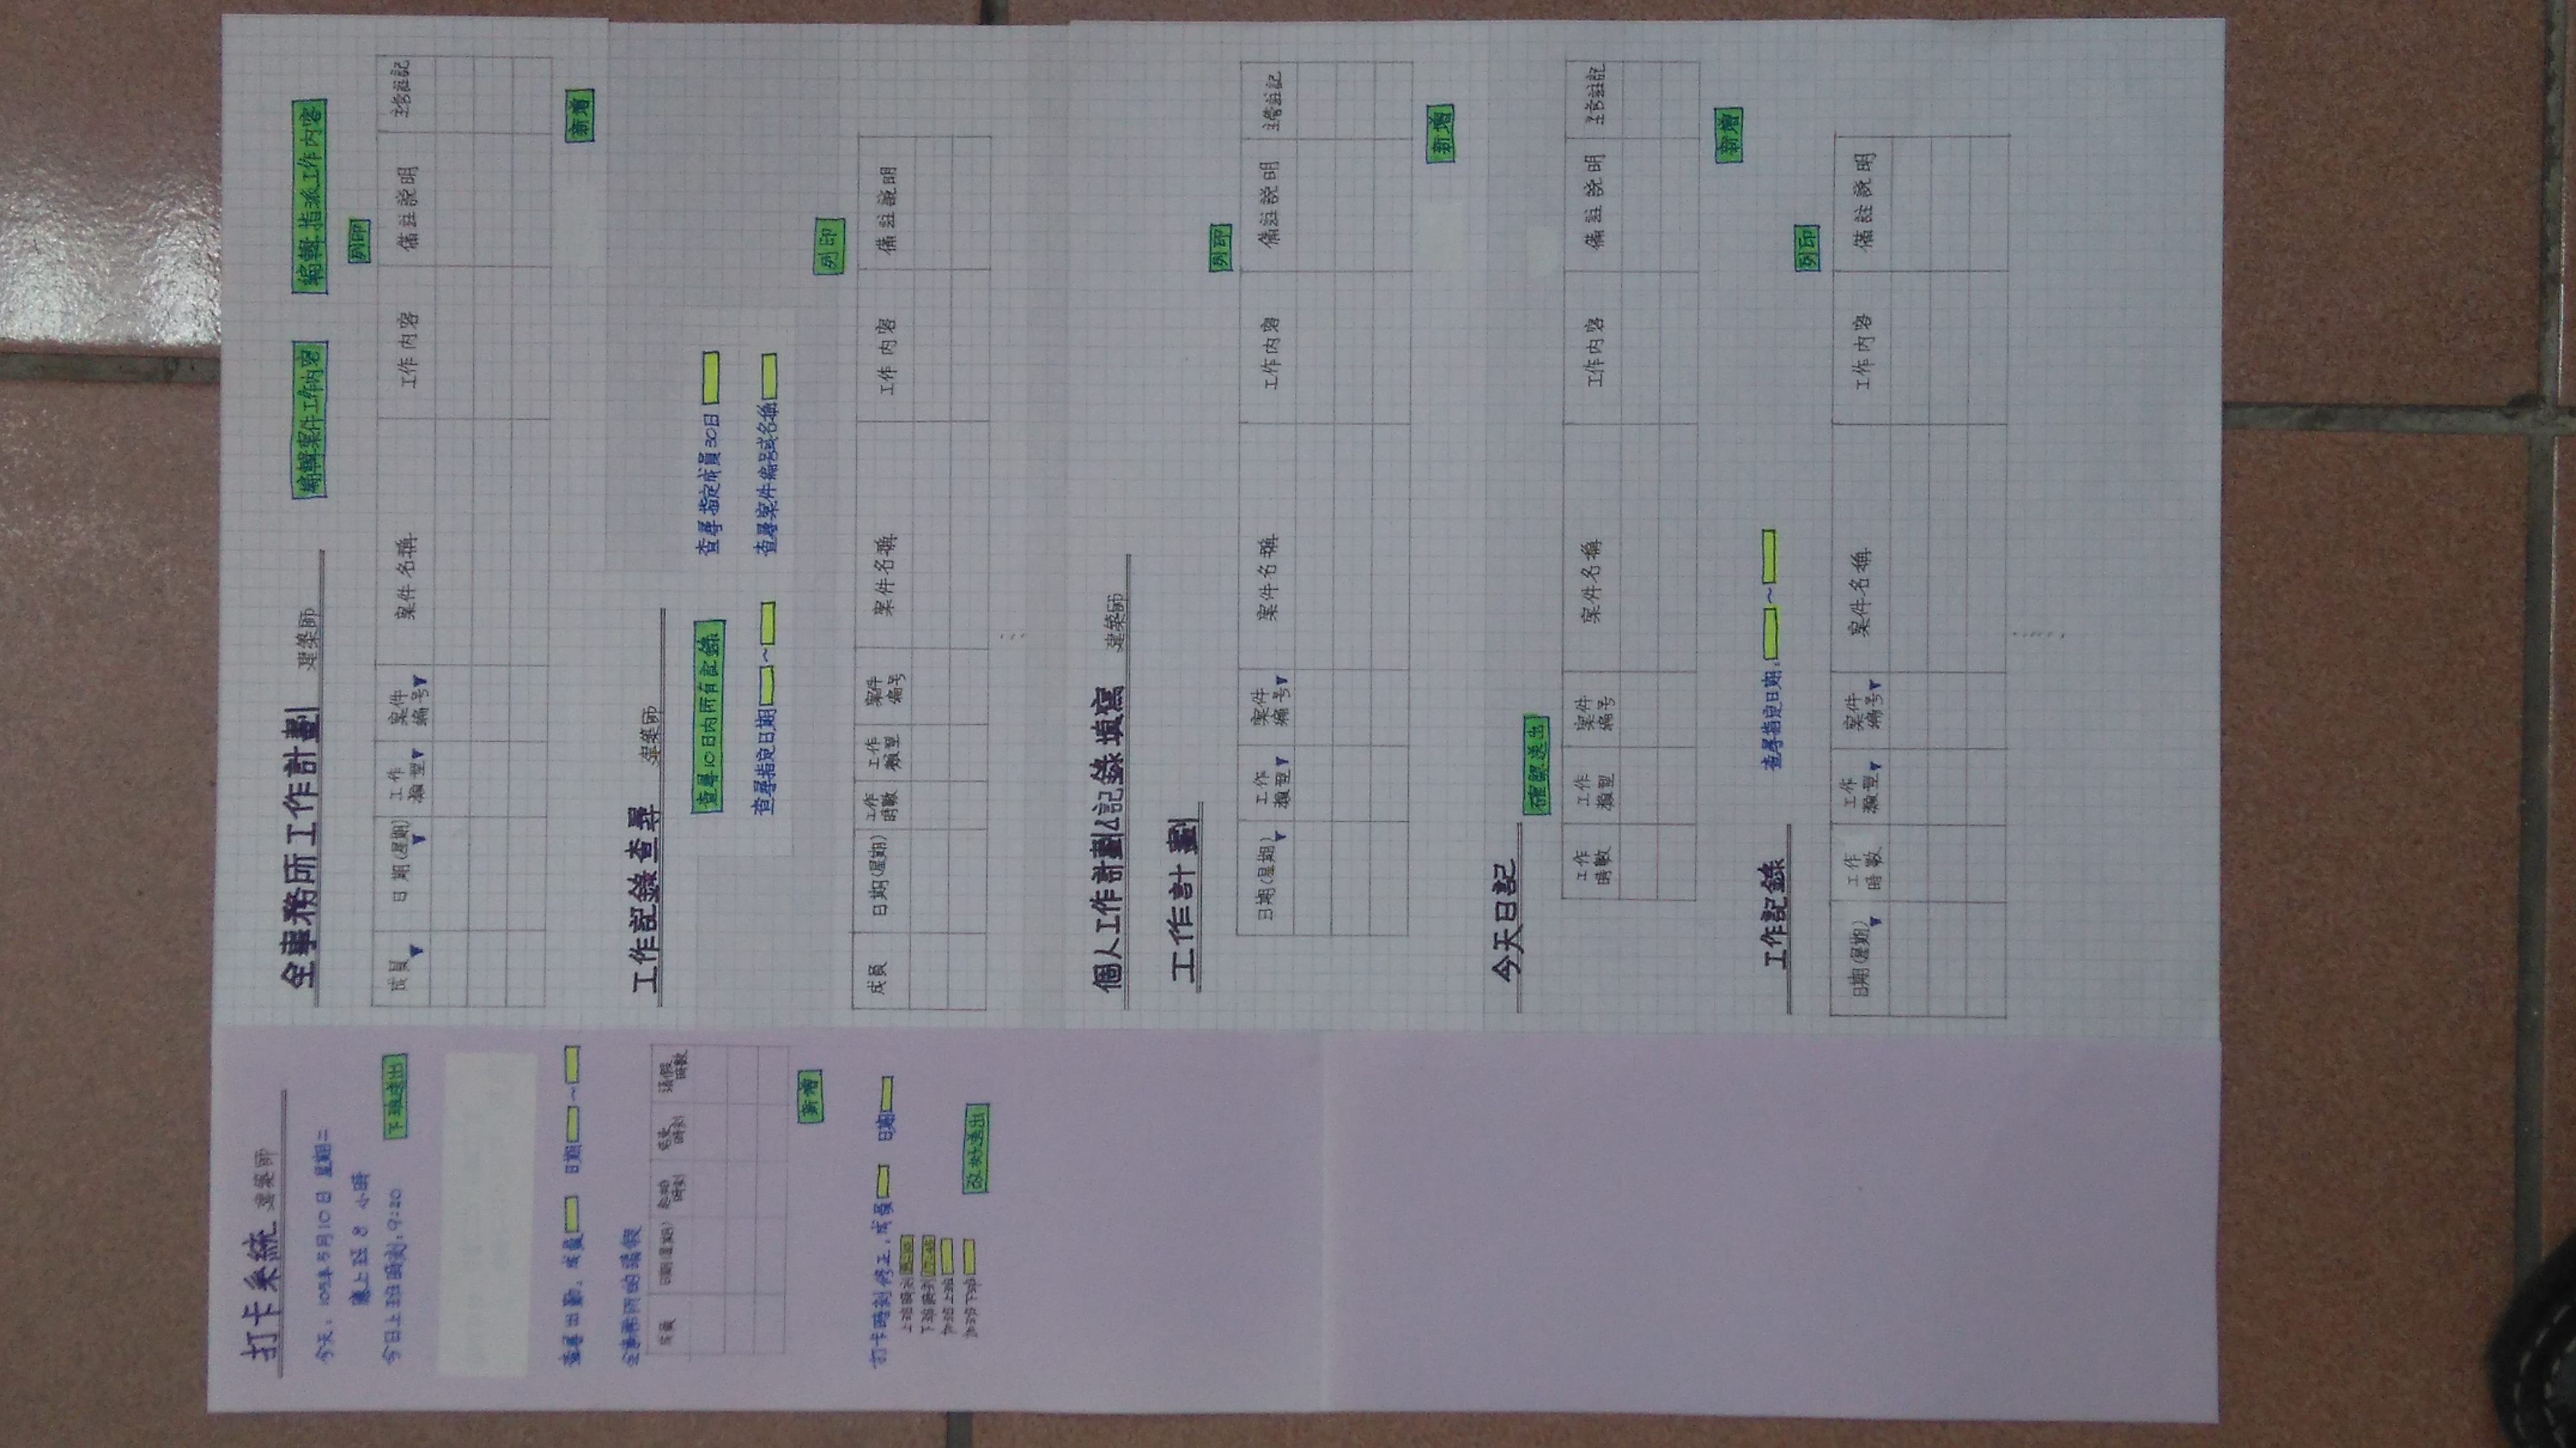 打卡系統 建築師
今天：105年5月10日 星期二
應上班 8 小時
今日上班時刻：9:20 下班送出
查尋出勤：成員 日期 ～
全事務所的請假
成員 日期(星期) 起始時刻 結束時刻 請假時數
新增
打卡時刻修正：成員 日期
上班時刻
下班時刻 17:45
改好送出
全事務所工作計劃 建築師 編輯案件工作內容 編輯指派工作內容
列印
成員 日期(星期) 工作類型 案件編号 案件名稱 工作內容 備註說明 主管註記
新增
工作記錄查尋 建築師
查尋10日內所有記錄 查尋指定成員30日
查尋指定日期 ～ 查尋案件編号或名稱
列印
成員 日期(星期) 工作時數 工作類型 案件編号 案件名稱 工作內容 備註說明
個人工作計劃&記錄填寫 建築師
工作計劃
列印
日期(星期) 工作類型 案件編号 案件名稱 工作內容 備註說明 主管註記
新增
今天日記
確認送出
工作時數 工作類型 案件編号 案件名稱 工作內容 備註說明 主管註記
新增
工作記錄 查尋指定日期： ～
列印
日期(星期) 工作時數 工作類型 案件編号 案件名稱 工作內容 備註說明